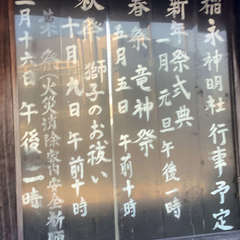 稲永神明社 行事予定
新年祭式典
一月元旦午後一時
春祭 竜神祭
五月五日 午前十時
秋祭 獅子のお祓い
十月九日 午前十時
(火災消除家内安全祈願
二月十六日 午後二時